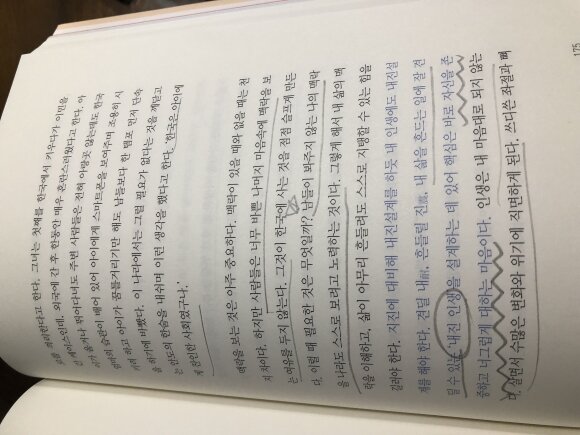 175
로를 의미한다고 한다. 그녀는 첫째를 한국에서 키우다가 이민을
간 케이스인데, 외국에 간 후 한동안 매우 혼란스러웠다고 한다. 아
이가 울거나 뛰어다녀도 주변 사람들은 전혀 아랑곳 않는데도 한국
엄마의 습관이 배어 있어 아이에게 스마트폰을 보여주며 조용히 시
키려 하고 아이가 꿈틀거리기만 해도 남들보다 한 템포 먼저 단속
을 하기에 바빴다. 이 나라에서는 그럴 필요가 없다는 것을 깨닫고
는 안도의 한숨을 내쉬며 이런 생각을 했다고 한다. '한국은 아이에
게 잔인한 사회였구나.'
맥락을 보는 것은 아주 중요하다. 맥락이 있을 때와 없을 때는 천
지 차이다. 하지만 사람들은 너무 바쁜 나머지 마음속에 맥락을 보
는 여유를 두지 않는다. 그것이 한국에 사는 것을 점점 슬프게 만든
다. 이럴 때 필요한 것은 무엇일까? 남들이 봐주지 않는 나의 맥락
을 나라도 스스로 보려고 노력하는 것이다. 그렇게 해서 내 삶의 맥
락을 이해하고, 삶이 아무리 흔들려도 스스로 지탱할 수 있는 힘을
길러야 한다. 지진에 대비해 내진설계를 하듯 내 인생에도 내진설
계를 해야 한다. 견딜 내耐, 흔들릴 진震, 내 삶을 흔드는 일에 잘 견
딜 수 있도록 '내진 인생'을 설계하는 데 있어 핵심은 바로 자신을 존
중하고 너그럽게 대하는 마음이다. 인생은 내 마음대로 되지 않는
다. 살면서 수많은 변화와 위기에 직면하게 된다. 쓰디쓴 좌절과 뼈